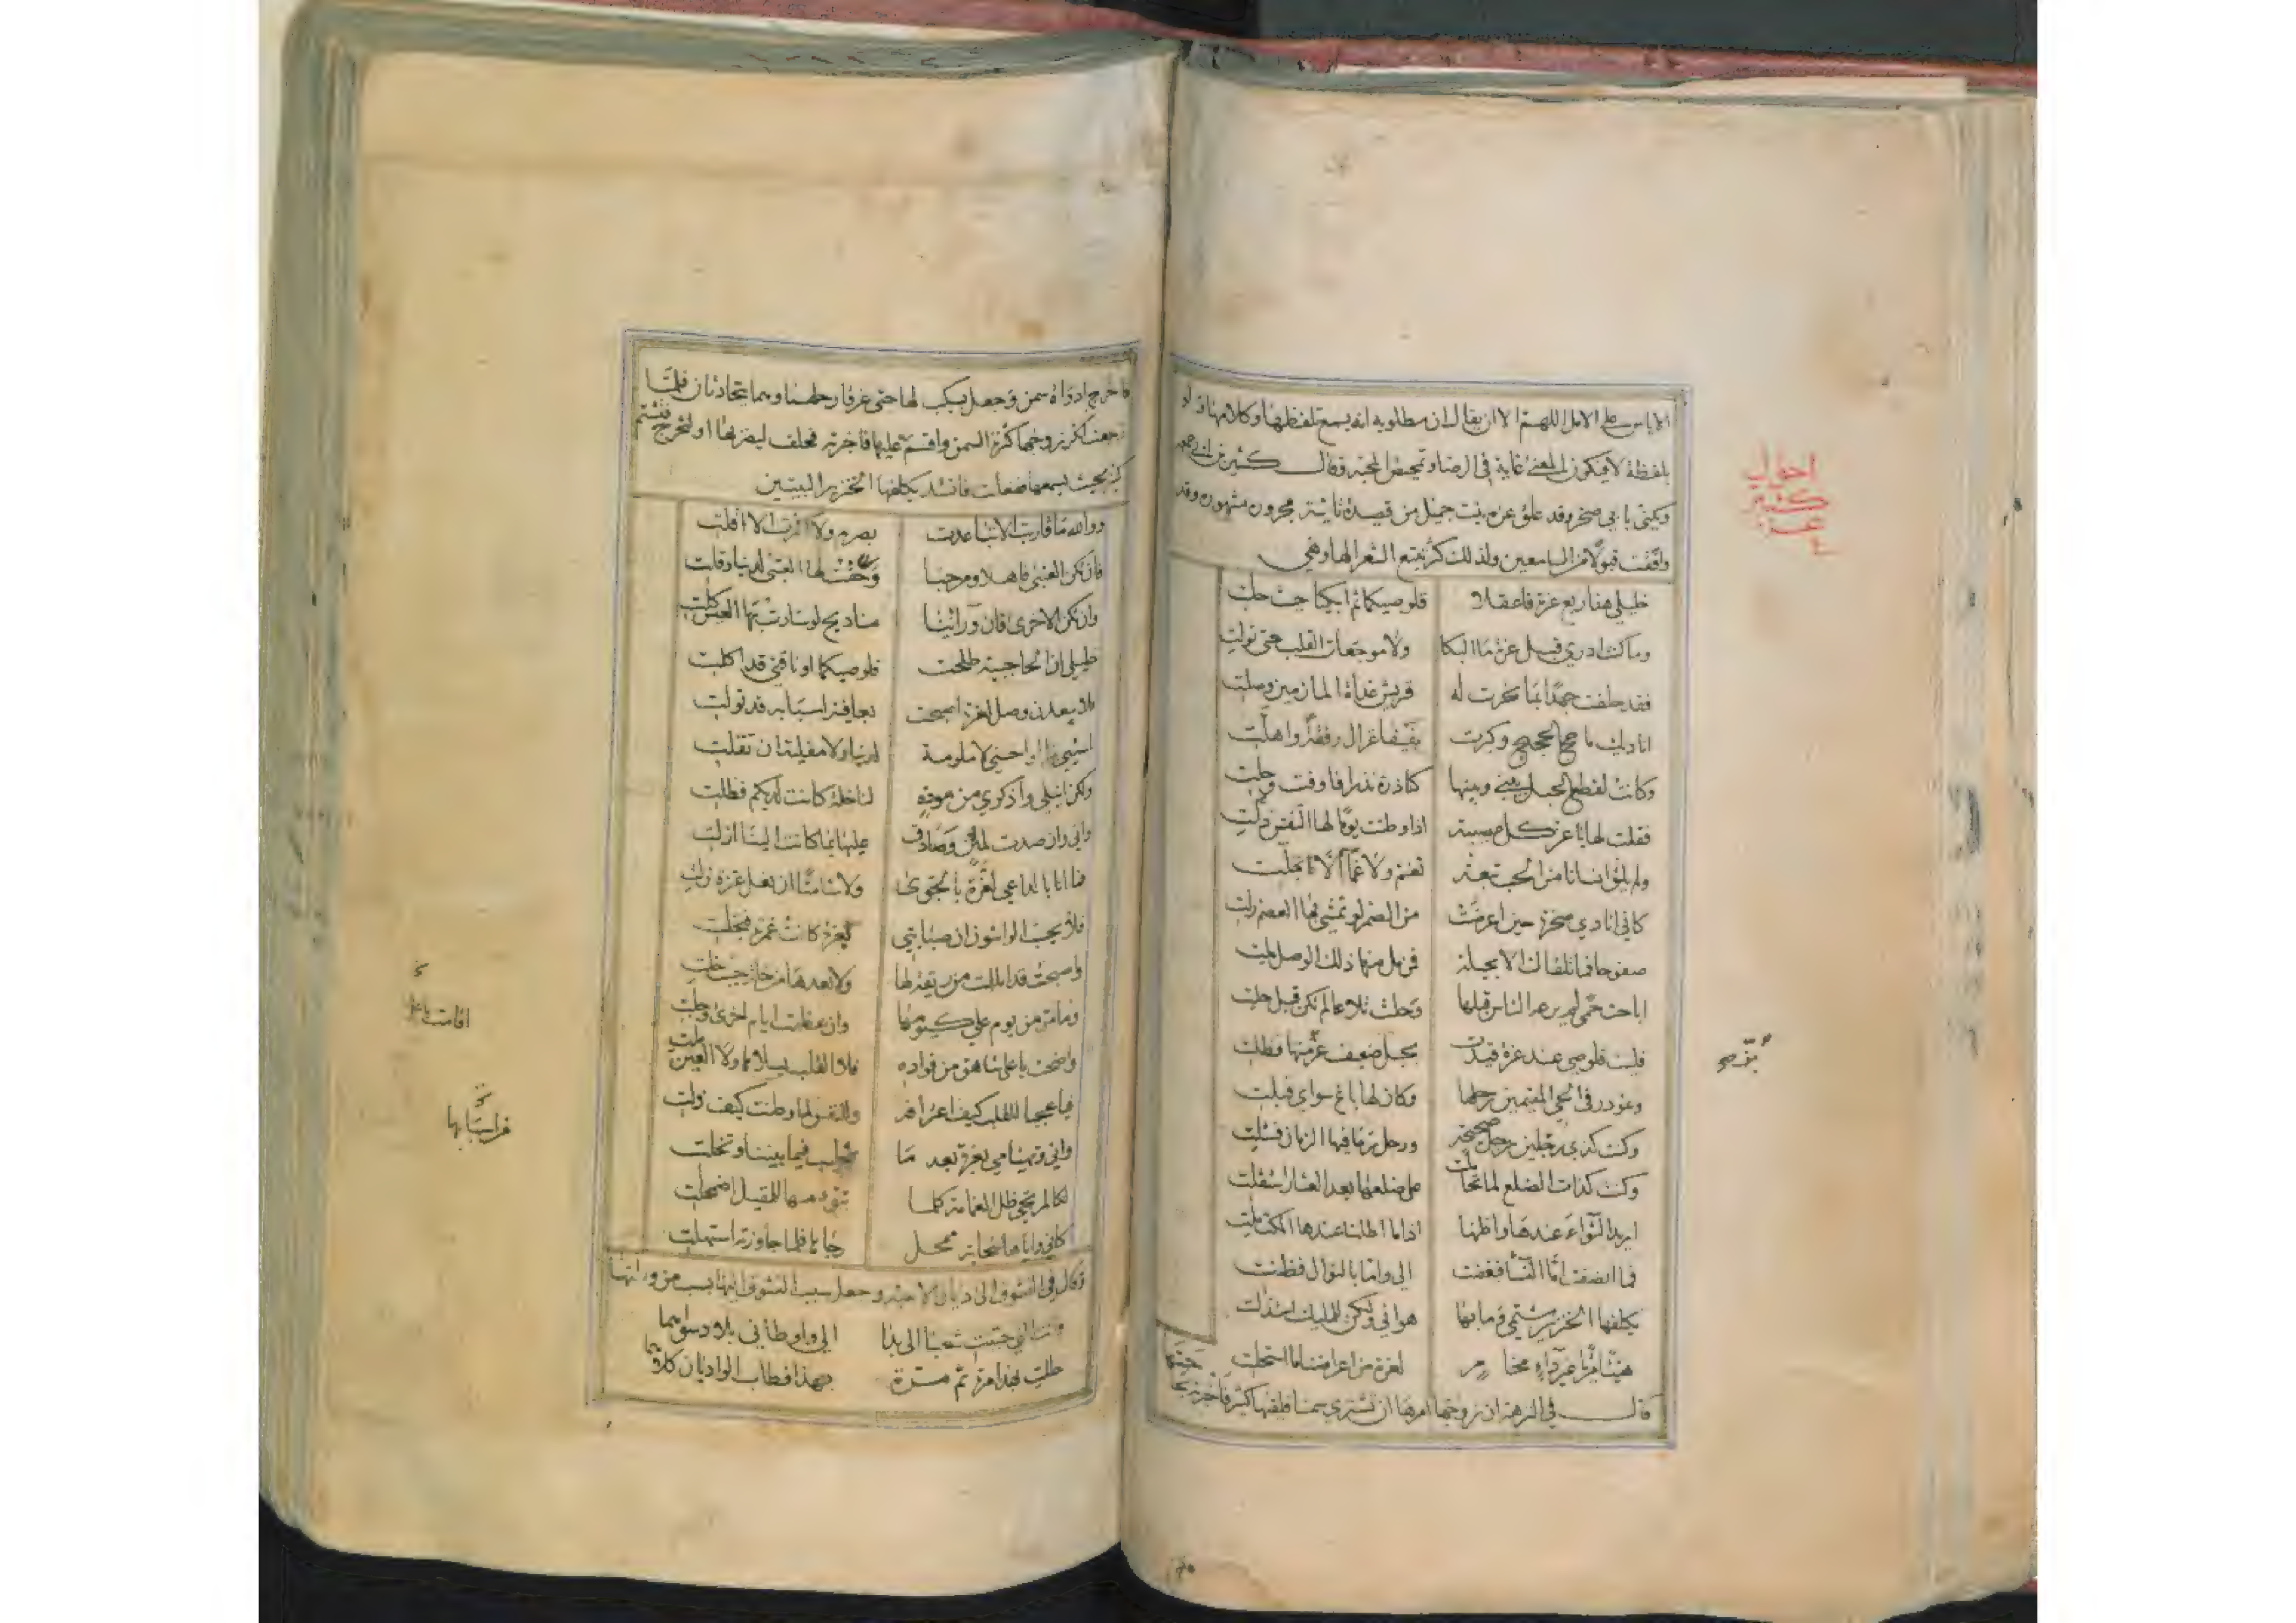 الاياس على الامل اللهم الا ان يقال ان مطلوبه انه يسمع تلفظها وكلامها ولو
بلفظة لا فيكون المعنى غاية في الرضا وتمحيض المحبة وقال كثير بن ابي جمعه
ويكنى بابي صخر وقد علق عزه بنت جميل من قصيدة تائية مجرون مشهورة وقد
وافقت قبولا من السامعين ولذلك كثر تتبع الشعر الها وهي
خليلي هذا ربع عزة فاعقلا قلوصيكما ثم ابكيا حيث حلت
وما كنت ادري قبل عزة ما البكا ولا موجعات القلب حتى تولت
فقد حلفت جهدا بما نحرت له قريش غداة المازمين وصلت
اناديك ما حج الحجيج وكبرت بفيفا غزال رفقة واهلت
وكانت لقطع الحبل بيني وبينها كناذرة نذرا فاوفت وحلت
فقلت لها يا عز كل مصيبة اذا وطنت يوما لها النفس ذلت
ولم يلق انسانا من الحب تعم ولا غما الا تجلت
كاني انادي صخرة حين اعرضت من الصم لو تمشي بها العصم زلت
صفوحا فما تلقاك الا بخيلة فمن مل منها ذلك الوصل ملت
اباحت حمى لم يرعه الناس قبلها وحلت تلاعا لم تكن قبل حلت
فليت قلوصي عند عزة قيدت بحبل ضعيف عز منها فظلت
وغودر في الحي المقيمين رحلها وكان لها باغ سواي فبلت
وكنت كذي رجلين رجل صحيحة ورجل رما فيها الزمان فشلت
وكنت كذات الضلع لما تحاملت على ضلعها بعد العثار استقلت
اريد الثواء عندها واظنها اذا ما اطلنا عندها المكث ملت
فما انصفت اما النسا فبغضت الي واما بالنوال فظنت
يكلفها الخنزير شتمي وما بها هواني ولكن للمليك استذلت
هنيئا مريا غير داء مخامر لعزة من اعراضنا ما استحلت
قال في النزهة ان زوجها امرها ان تشتري سمنا فلقيها كثير فاخبرته بحاجتها
احوال
كثير
عزة
فاخرج اداوة سمن وجعل يسكب لها حتى غرقا رحلهما وهما يتحادثان فلما
رجعت انكر زوجها كثرة السمن واقسم عليها فاخبرته فحلف ليضربها او لتخرج فتشتم
كثير بحيث يسمعها ففعلت فانشد يكلفها الخنزير البيتين
ووالله ما قاربت الا تباعدت بصرم ولا اكثرت الا اقلت
فان تكن العتبى فاهلا ومرحبا وحقت لها العتبى لدينا وقلت
وان تكن الاخرى فان وراءنا مناديح لو سارت بها العيس كلت
خليلي ان الحاجبية طلحت قلوصيكما او ناقتي قد اكلت
فلا يبعدن وصل لعزة اصبحت بعاقبة اسبابه قد تولت
اسيئي بنا او احسني لا ملومة لدينا ولا مقلية ان تقلت
ولكن انيلي واذكري من مودة لنا خلة كانت لديكم فطلت
واني وان صدت لمثن وصادق عليها بما كانت الينا ازلت
فما انا بالداعي لعزة بالجوى ولا شامتا ان نعل عزة زلت
فلا يحسب الواشون ان صبابتي بعزة كانت غمرة فتجلت
ولا بعدها من خلة حيث حلت
وما مر من يوم علي كيومها وان عظمت ايام اخرى وجلت
واضحت باعلى شاهق من فواده فلا القلب يسلاها ولا العين ملت
فيا عجبا للقلب كيف اعترافه وللنفس لما وطنت كيف ذلت
واني وتهيامي بعزة بعد ما تخليت فيما بيننا وتخلت
لكالمرتجي ظل الغمامة كلما تبوء منها للمقيل اضمحلت
كاني واياها سحابة ممحل رجاها فلما جاوزته استهلت
وقال في التشوق الى ديار الاحبة وجعل سبب التشوق
وانت التي حببت شعبا الى بدا الي واوطاني بلاد سواهما
حللت بهذا مرة ثم مرة بهذا فطاب الواديان كلاهما